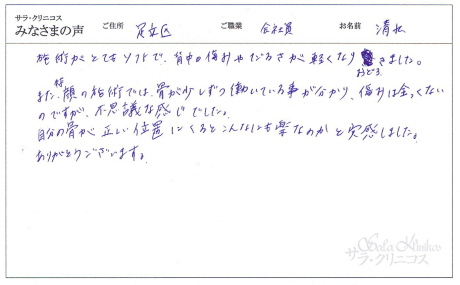 サラ・クリニコス
みなさまの声 ご住所 足立区 ご職業 会社員 お名前 清水
施術がとてもソフトで、背中の傷みやだるさが軽くなりおどろきました。
また、特に顔の施術では、骨が少しずつ動いている事が分かり、傷みは全くない
のですが、不思議な感じでした。
自分の骨が正しい位置にくるとこんなにも楽なのかと実感しました。
ありがとうございます。
Sala Klinikos
サラ・クリニコス